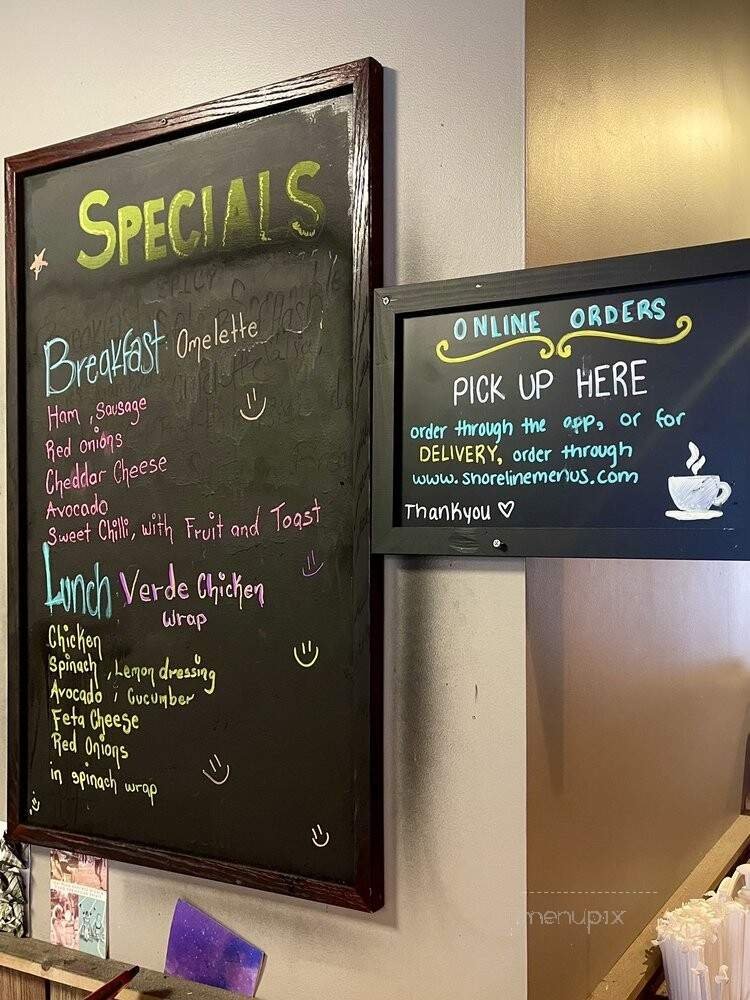 SPECIALS
Breakfast Omelette
Ham, Sausage
Red onions
Cheddar Cheese
Avocado
Sweet Chilli, with Fruit and Toast
Lunch Verde Chicken
wrap
Chicken
Spinach, Lemon dressing
Avocado, Cucumber
Feta Cheese
Red Onions
in spinach wrap
ONLINE ORDERS
PICK UP HERE
order through the app, or for
DELIVERY, order through
www.shorelinemenus.com
Thankyou ♡
menupix